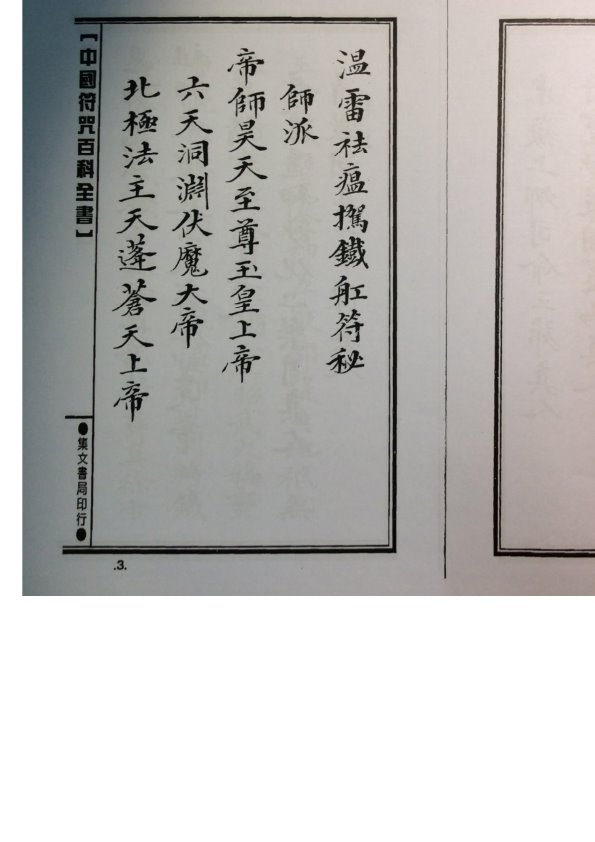 溫雷祛瘟攆鐵舡符秘
師派
帝師昊天至尊玉皇上帝
六天洞淵伏魔大帝
北極法主天蓬蒼天上帝
【中國符咒百科全書】
●集文書局印行●
.3.